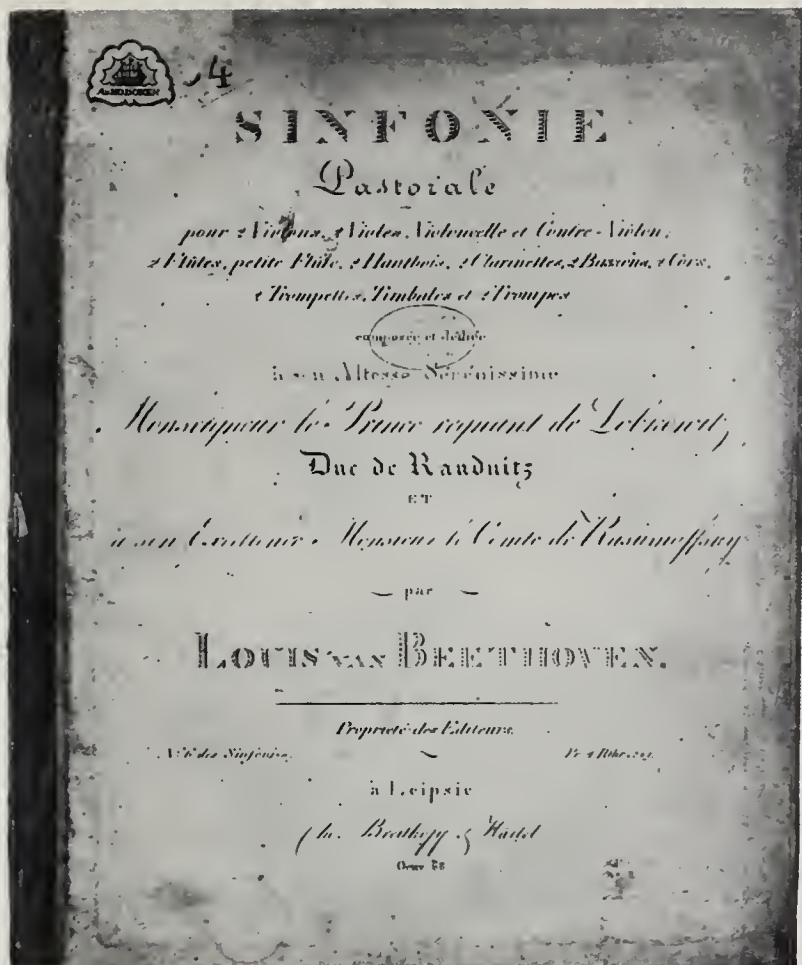 A. v. HOBOKEN
4
SINFONIE
Pastorale
pour 2 Violons, 2 Violes, Violoncelle et Contre-Violon,
2 Flûtes, petite Flûte, 2 Hautbois, 2 Clarinettes, 2 Bassons, 2 Cors,
2 Trompettes, Timbales et 2 Trompes
composée et dédiée
à son Altesse Sérénissime
Monseigneur le Prince regnant de Lobkowitz,
Duc de Raudnitz
ET
à son Excellence Monsieur le Comte de Rasumoffsky
par
LOUIS VAN BEETHOVEN.
Propriété des Editeurs.
N.º 6 des Sinfonies.
à Leipsic
Ch. Breitkopf & Härtel
Oeuv. 68